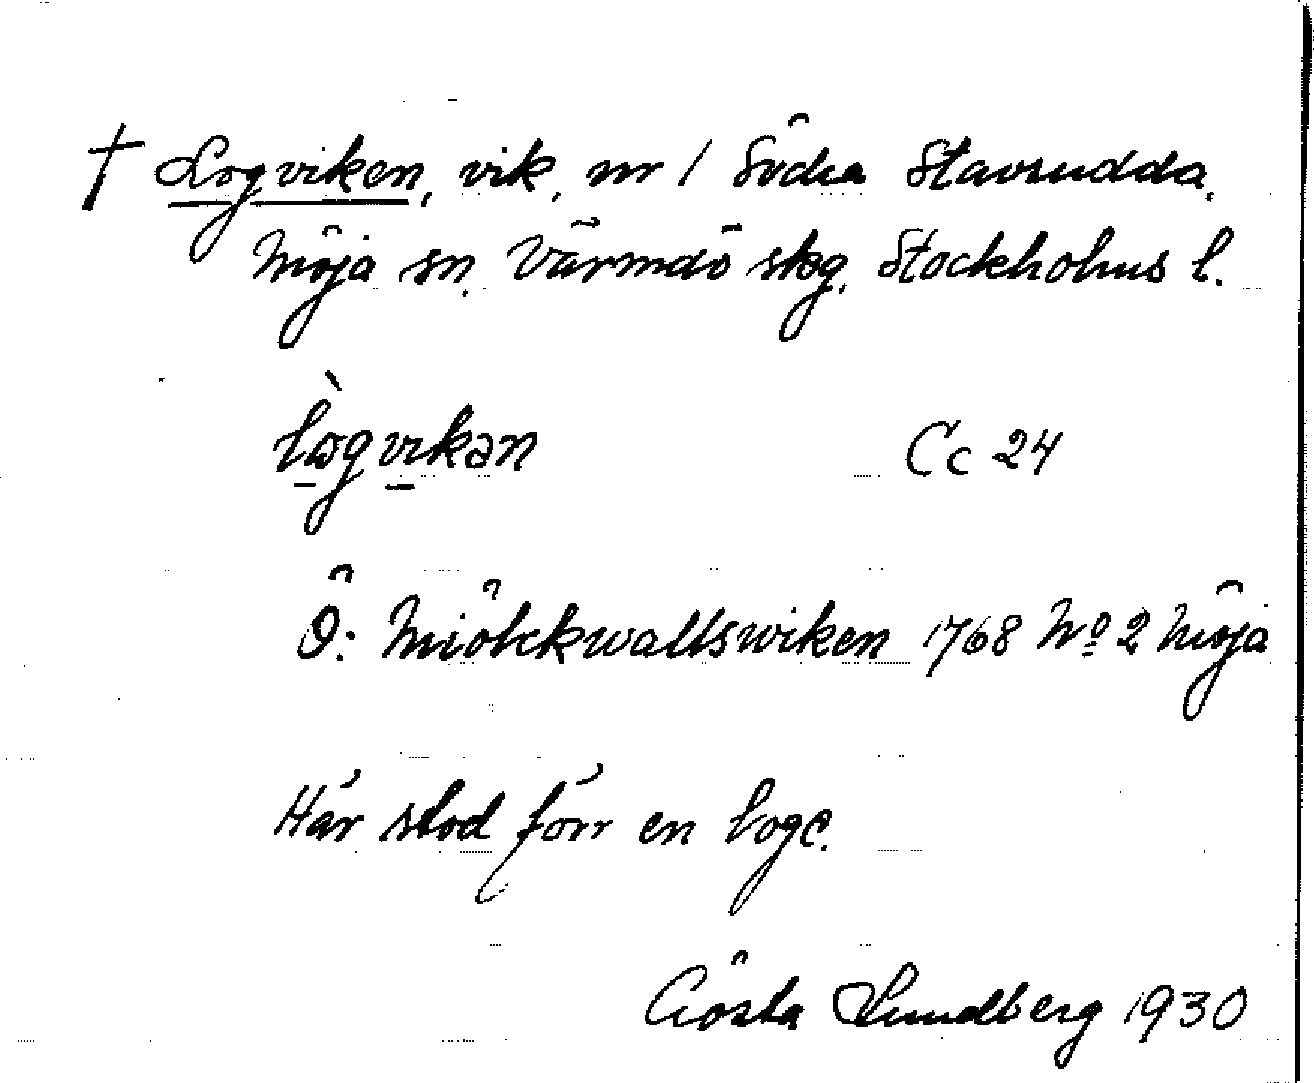 † Logviken, vik, nr 1 Södra Stavsudda,
Möja sn. Värmdö skg. Stockholms l.
lògvikən Cc 24
Ö: Miölckwallswiken 1768 No 2 Möja
Här stod förr en loge.
Gösta Lundberg 1930